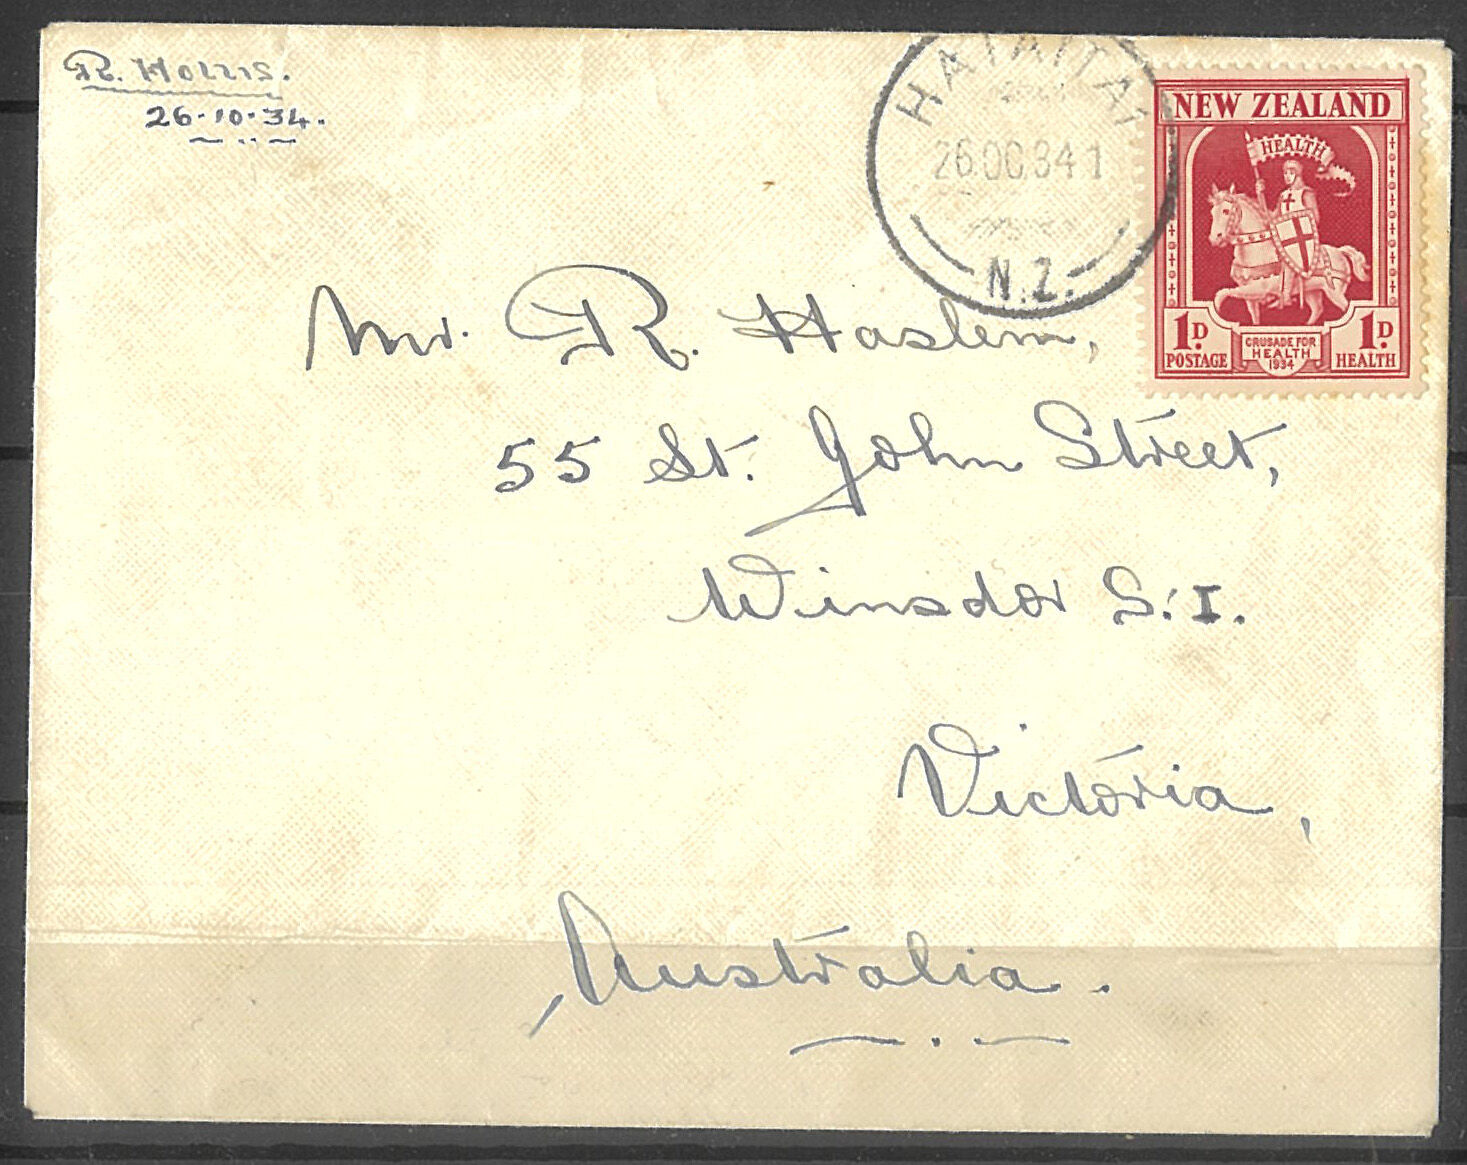 R. Hollis.
26·10·34.
HATAITAI
26 OC 34 1
N.Z.
NEW ZEALAND
HEALTH
1D. 1D.
POSTAGE HEALTH
CRUSADE FOR
HEALTH
1934
Mr. R. Haslem,
55 St. John Street,
Winsdor S.I.
Victoria,
Australia.